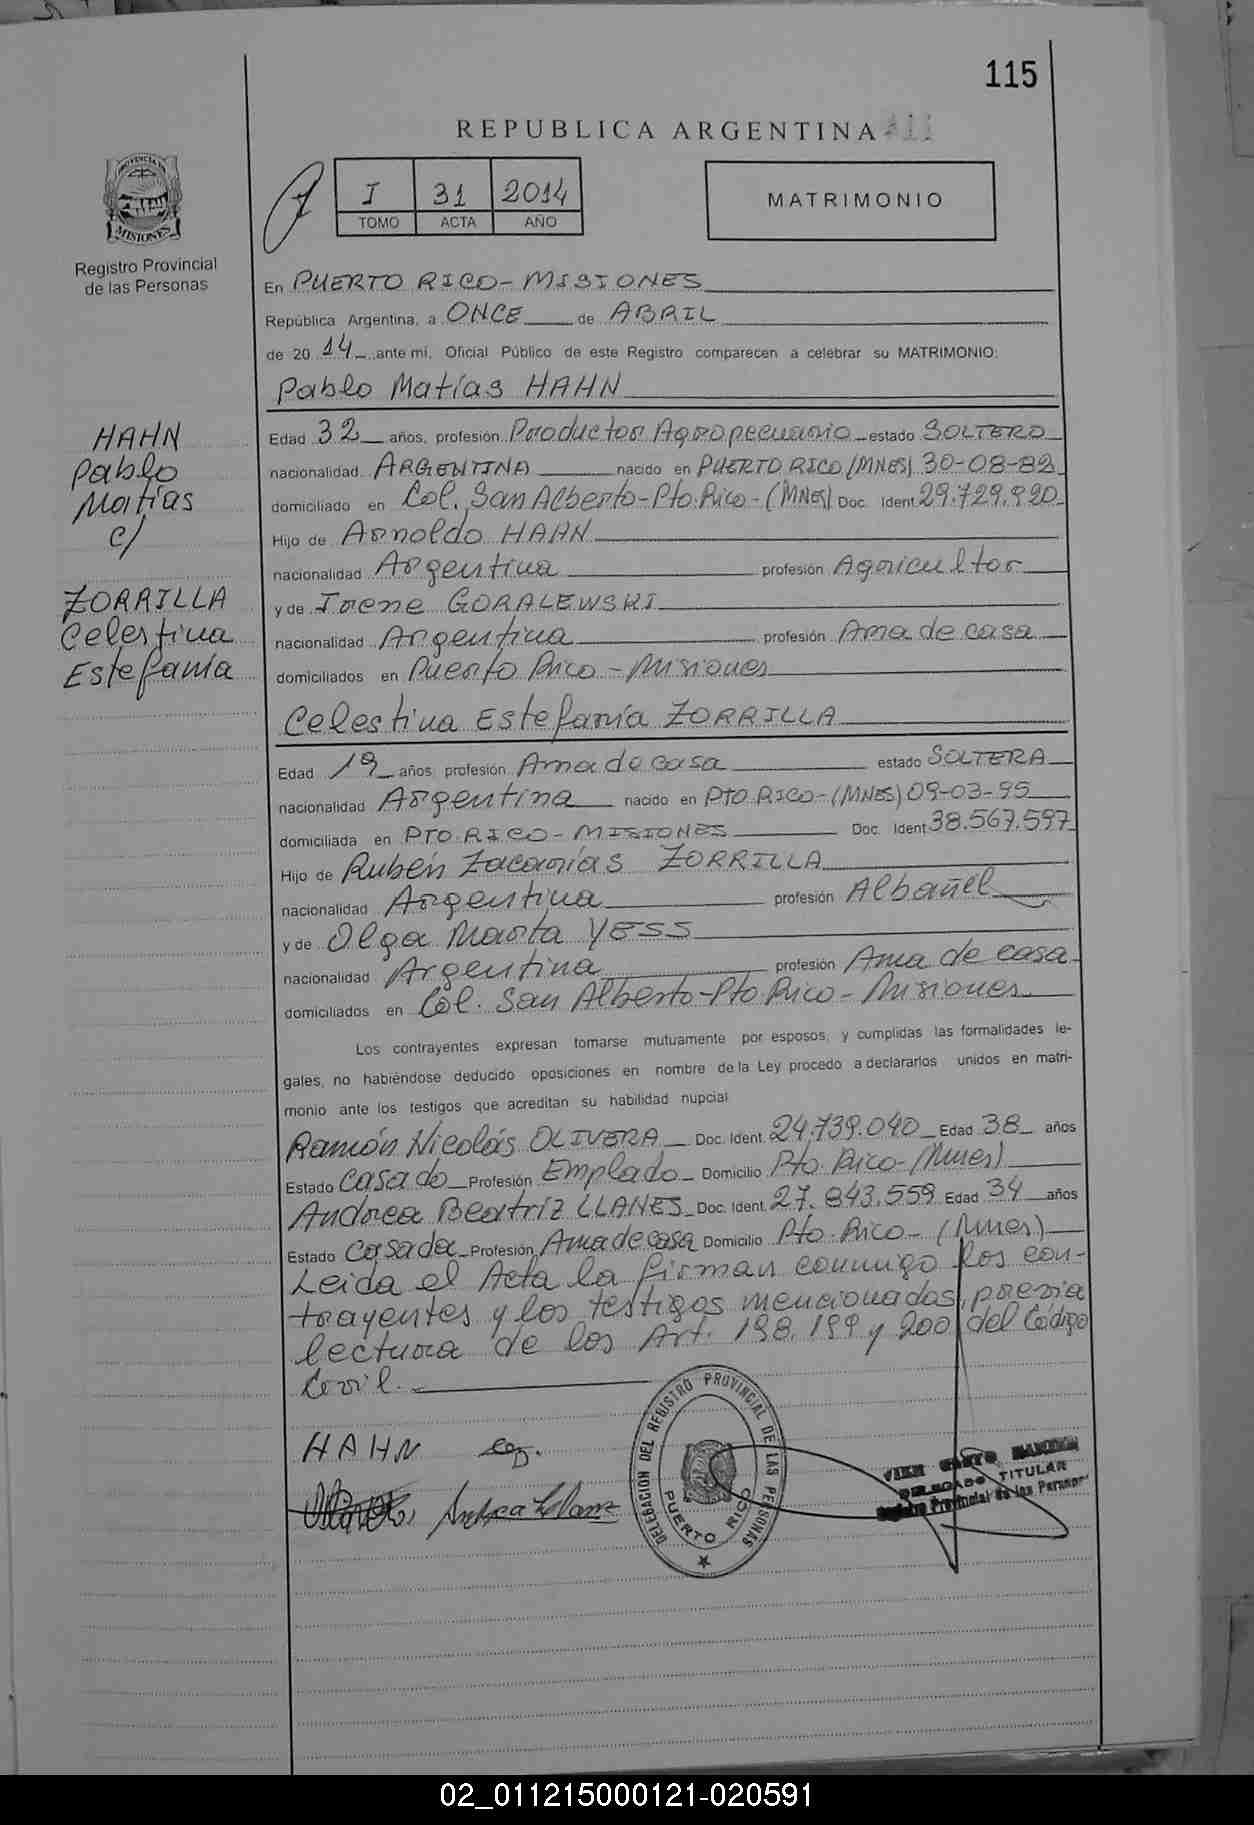 115
REPUBLICA ARGENTINA
PROVINCIA DE
MISIONES
Registro Provincial
de las Personas
I 31 2014
TOMO ACTA AÑO
MATRIMONIO
En PUERTO RICO-MISIONES
República Argentina, a ONCE de ABRIL
de 2014 ante mi, Oficial Público de este Registro comparecen a celebrar su MATRIMONIO:
Pablo Matías HAHN
HAHN
Pablo
Matías
c/
ZORRILLA
Celestina
Estefanía
Edad 32 años, profesión Productor Agropecuario estado SOLTERO
nacionalidad ARGENTINA nacido en PUERTO RICO (MNES) 30-08-82
domiciliado en Col. San Alberto-Pto. Rico-(MNES) Doc. Ident. 29.729.920
Hijo de Arnoldo HAHN
nacionalidad Argentina profesión Agricultor
y de Irene GORALEWSKI
nacionalidad Argentina profesión Ama de casa
domiciliados en Puerto Rico-Misiones
Celestina Estefanía ZORRILLA
Edad 19 años, profesión Ama de casa estado SOLTERA
nacionalidad Argentina nacido en PTO RICO-(MNES) 09-03-95
domiciliada en PTO. RICO-MISIONES Doc. Ident 38.567.597
Hijo de Rubén Zacarías ZORRILLA
nacionalidad Argentina profesión Albañil
y de Olga Marta YESS
nacionalidad Argentina profesión Ama de casa
domiciliados en Col. San Alberto-Pto. Rico-Misiones
Los contrayentes expresan tomarse mutuamente por esposos, y cumplidas las formalidades le-
gales, no habiéndose deducido oposiciones en nombre de la Ley procedo a declararlos unidos en matri-
monio ante los testigos que acreditan su habilidad nupcial
Ramón Nicolás OLIVERA Doc. Ident. 24.739.040 Edad 38 años
Estado Casado Profesión Emplado Domicilio Pto. Rico-(Mnes)
Andrea Beatriz LLANES Doc. Ident. 27.843.559 Edad 34 años
Estado Casada Profesión Ama de casa Domicilio Pto. Rico-(Mnes)
Leida el Acta la firman conmigo los con-
trayentes y los testigos mencionados, previa
lectura de los Art. 198, 199 y 200 del Código
Civil.
HAHN
Andrea Llanes
DELEGACION DEL REGISTRO PROVINCIAL DE LAS PERSONAS
PUERTO RICO
DELEGADO TITULAR
Registro Provincial de las Personas
02_011215000121-020591